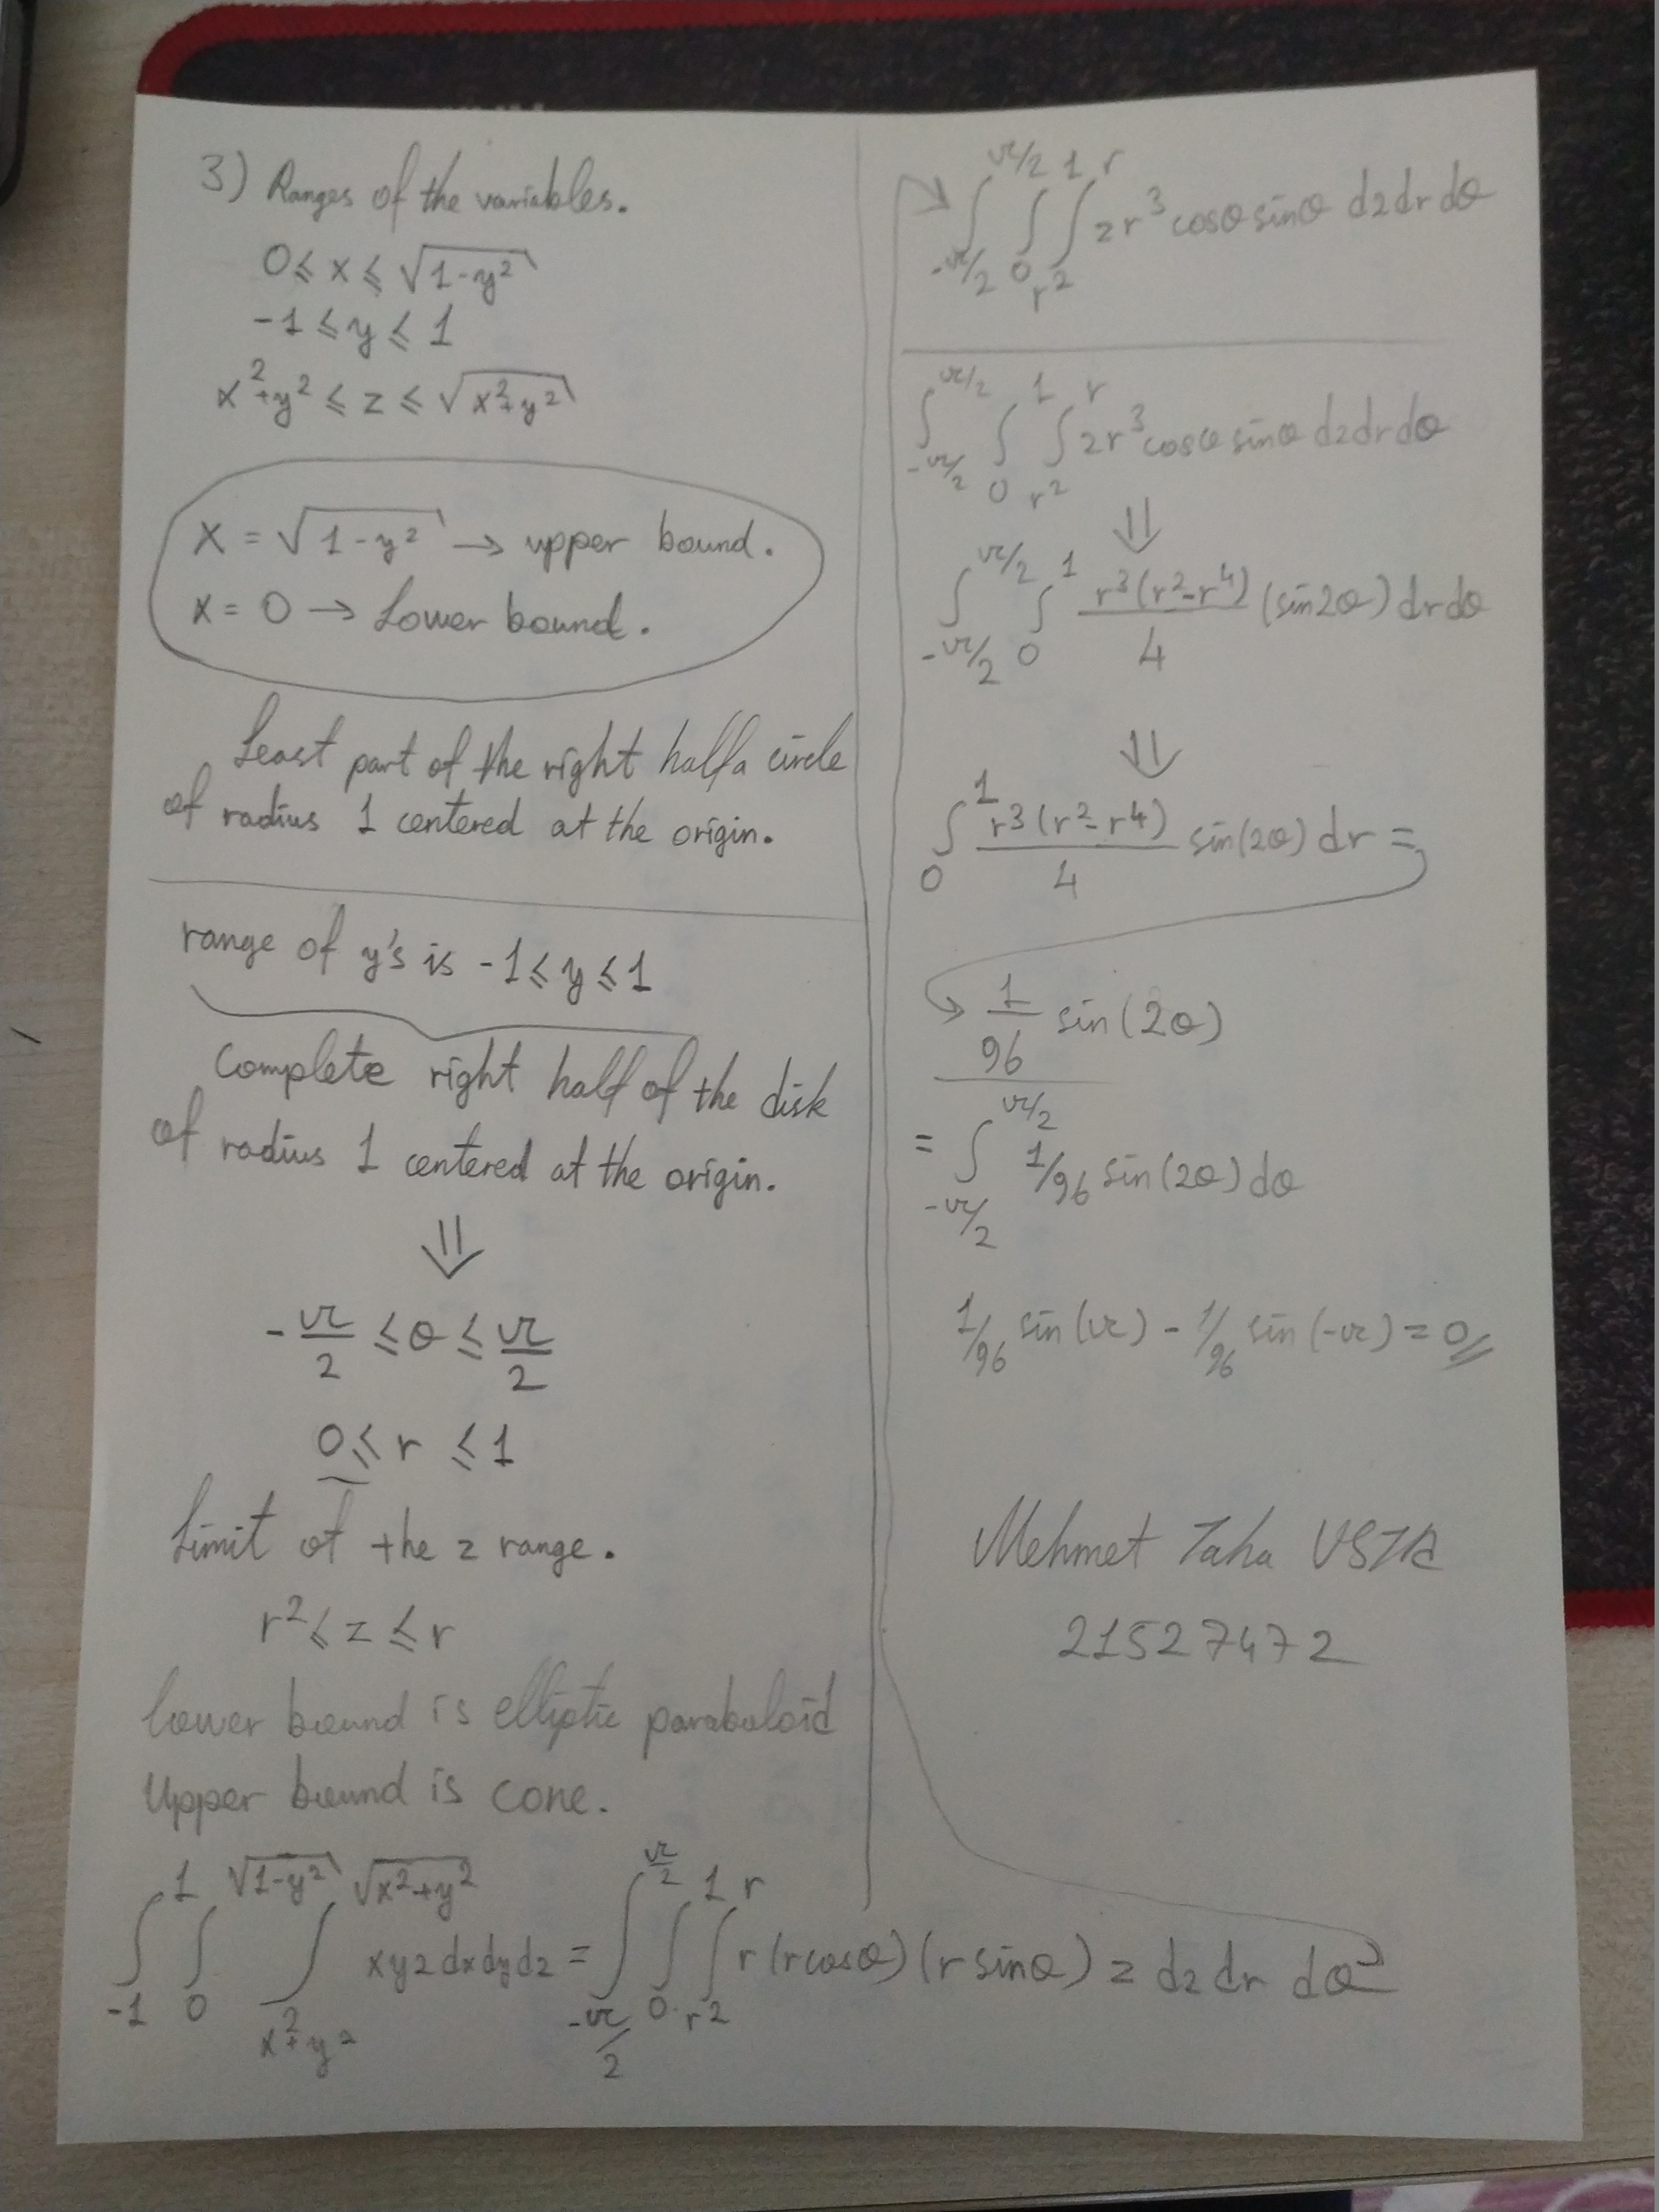 3) Ranges of the variables.
0 ≤ x ≤ √(1-y²)
-1 ≤ y ≤ 1
x²+y² ≤ z ≤ √(x²+y²)
x = √(1-y²) → upper bound.
x = 0 → Lower bound.
Least part of the right half a circle
of radius 1 centered at the origin.
range of y's is -1 ≤ y ≤ 1
Complete right half of the disk
of radius 1 centered at the origin.
⇓
-π/2 ≤ θ ≤ π/2
0 ≤ r ≤ 1
Limit of the z range.
r² ≤ z ≤ r
lower bound is elliptic parabuloid
Upper bound is cone.
∫_{-1}^{1} ∫_{0}^{√(1-y²)} ∫_{x²+y²}^{√(x²+y²)} xyz dxdydz = ∫_{-π/2}^{π/2} ∫_{0}^{1} ∫_{r²}^{r} r(rcosθ)(rsinθ) z dz dr dθ
→ ∫_{-π/2}^{π/2} ∫_{0}^{1} ∫_{r²}^{r} zr³ cosθ sinθ dzdrdθ
∫_{-π/2}^{π/2} ∫_{0}^{1} ∫_{r²}^{r} zr³ cosθ sinθ dzdrdθ
⇓
∫_{-π/2}^{π/2} ∫_{0}^{1} r³(r²-r⁴)/4 (sin2θ) drdθ
⇓
∫_{0}^{1} r³(r²-r⁴)/4 sin(2θ) dr =
→ 1/96 sin(2θ)
= ∫_{-π/2}^{π/2} 1/96 sin(2θ) dθ
1/96 sin(π) - 1/96 sin(-π) = 0//
Mehmet Taha USTA
21527472